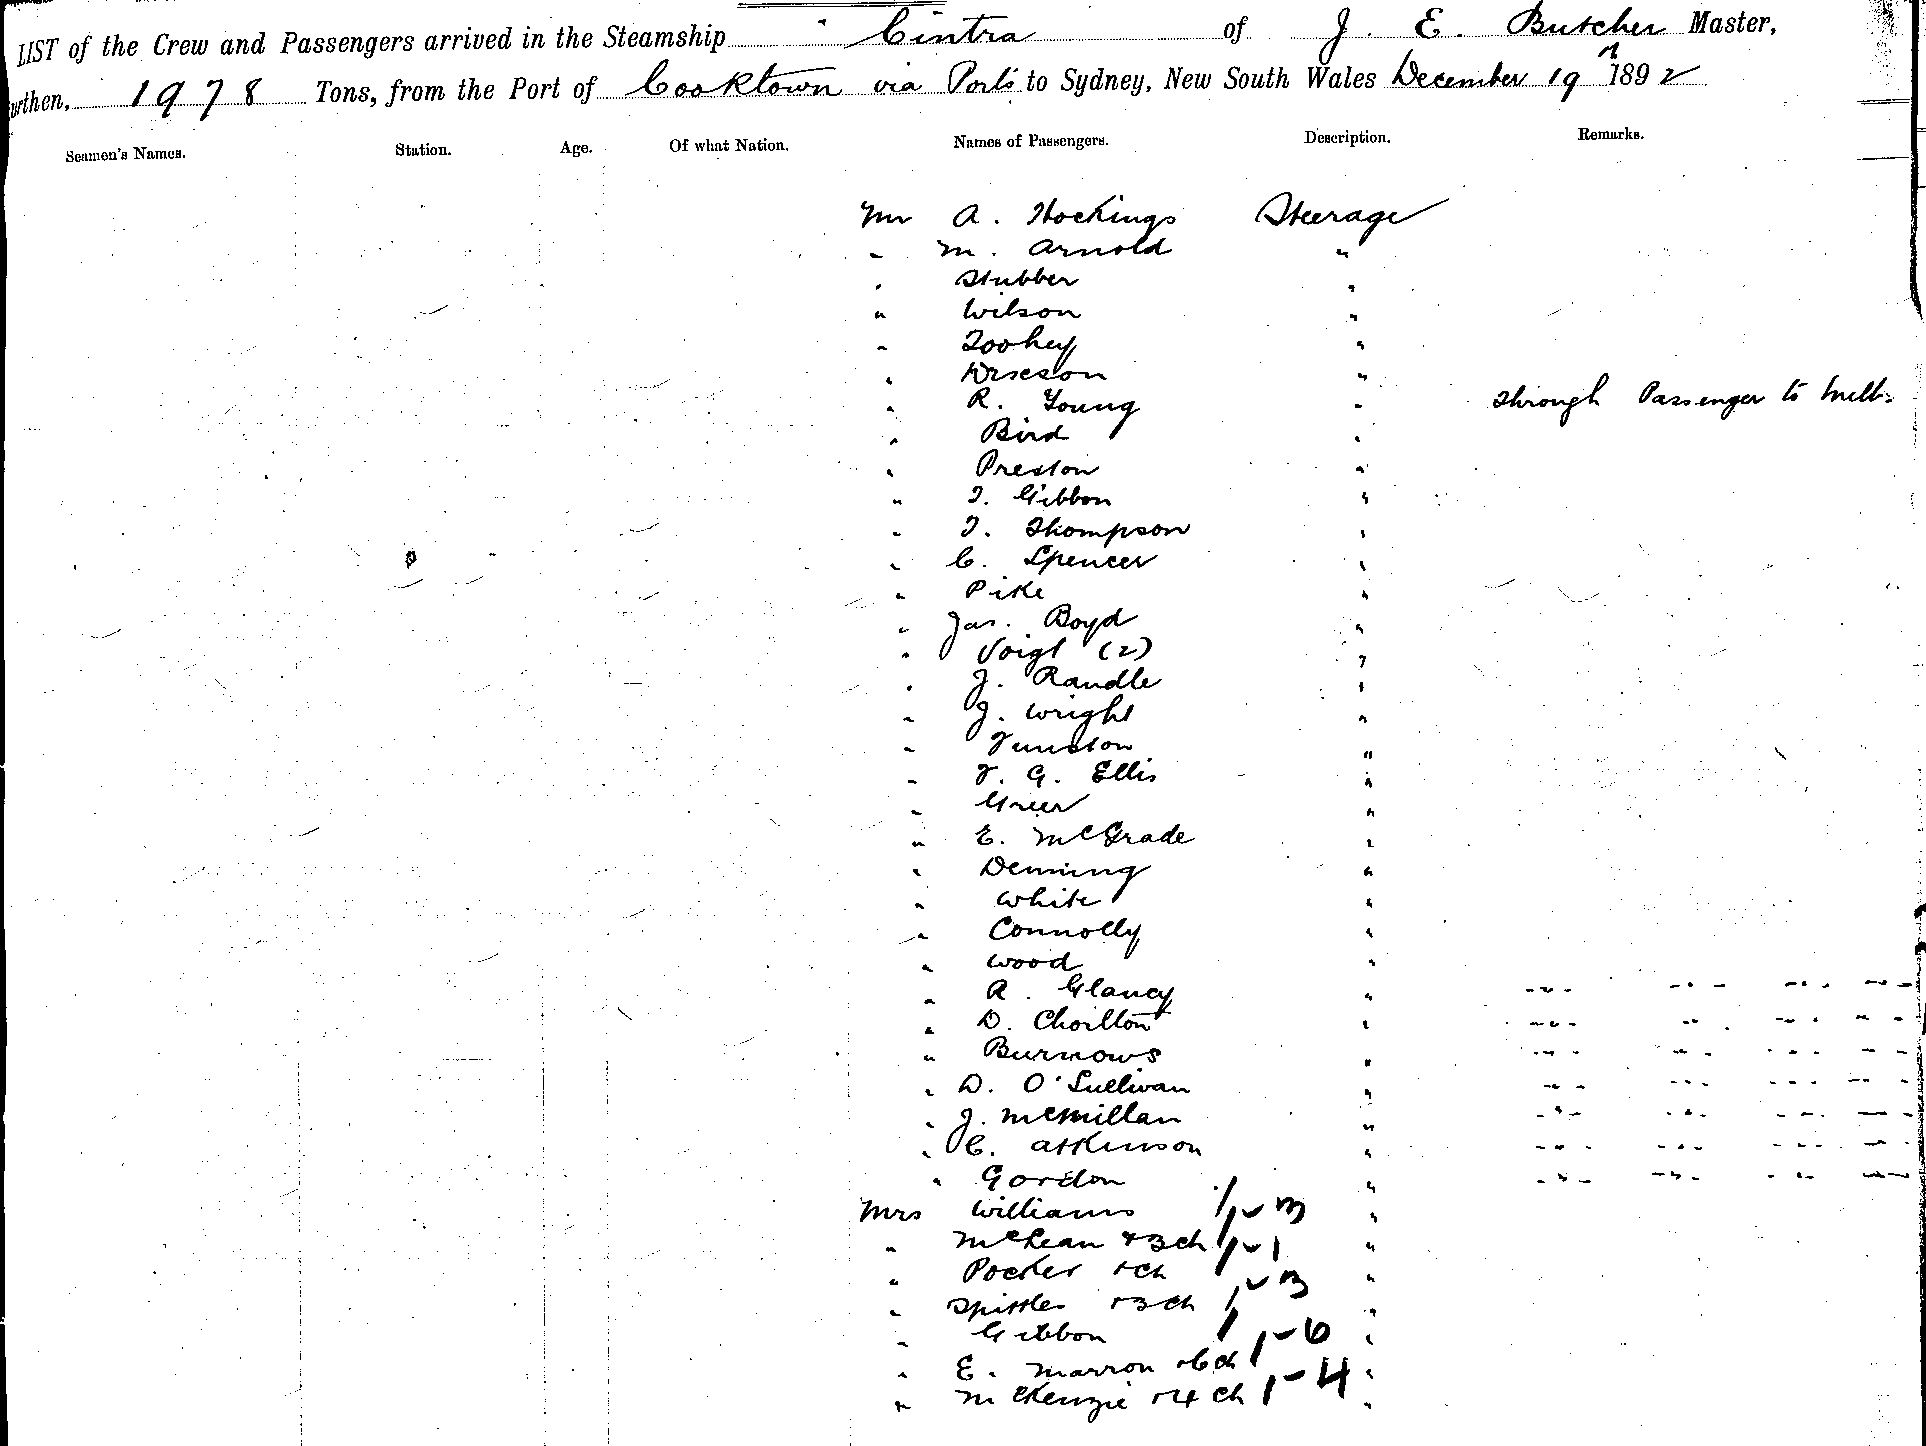 LIST of the Crew and Passengers arrived in the Steamship Cintra of J. E. Butcher Master,
rthen, 1978 Tons, from the Port of Cooktown via Ports to Sydney, New South Wales December 19th 1892
Seamen's Names. Station. Age. Of what Nation. Names of Passengers. Description. Remarks.
Mr A. Hockings Steerage
" M. Arnold "
" Stubber "
" Wilson "
" Toohey "
" "
" R. Young " Through Passenger to Melb:
" Bird "
" Preston "
" T. Gibbon "
" T. Thompson "
" C. Spencer "
" Pike "
" Jas. Boyd "
" Voigt (2) "
" J. Randle "
" J. Wright "
" "
" G. Ellis "
" Greer "
" E. McGrade "
" Denning "
" White "
" Connolly "
" Wood "
" R. Glancy " " " " "
" D. Chorlton " " " " "
" Burrows " " " " "
" D. O'Sullivan " " " " "
" J. McMillan " " " " "
" C. Atkinson " " " " "
" Gordon " " " " "
Mrs Williams "
" McLean +3ch 1-3 "
" Pocker +ch 1-1 "
" Spittles +3ch 1-3 "
" Gibbon 1 "
" E. Marron +6ch 1-6 "
" McKenzie +4ch 1-4 "